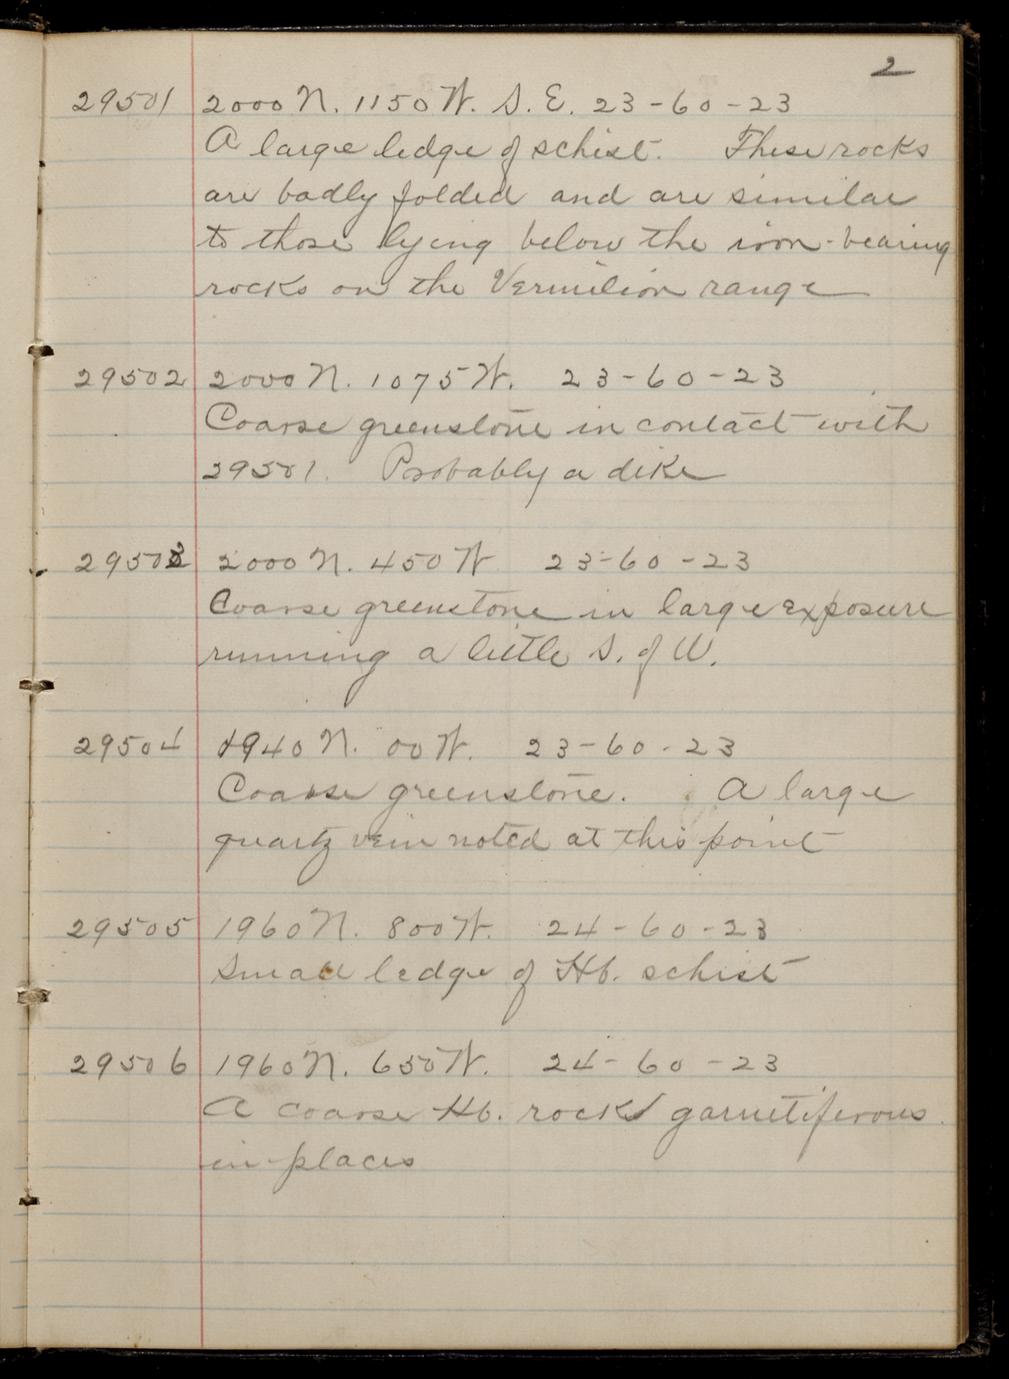 2
29501 2000 N. 1150 W. S. E. 23-60-23
A large ledge of schist. These rocks
are badly folded and are similar
to those lying below the iron-bearing
rocks on the Vermilion range
29502 2000 N. 1075 W. 23-60-23
Coarse greenstone in contact with
29501. Probably a dike
29503 2000 N. 450 W 23-60-23
Coarse greenstone in large exposure
running a little S. of W.
29504 1940 N. 00 W. 23-60-23
Coarse greenstone. A large
quartz vein noted at this point
29505 1960 N. 800 W. 24-60-23
Small ledge of Hb. schist
29506 1960 N. 650 W. 24-60-23
A coarse Hb. rock garnetiferous
in places